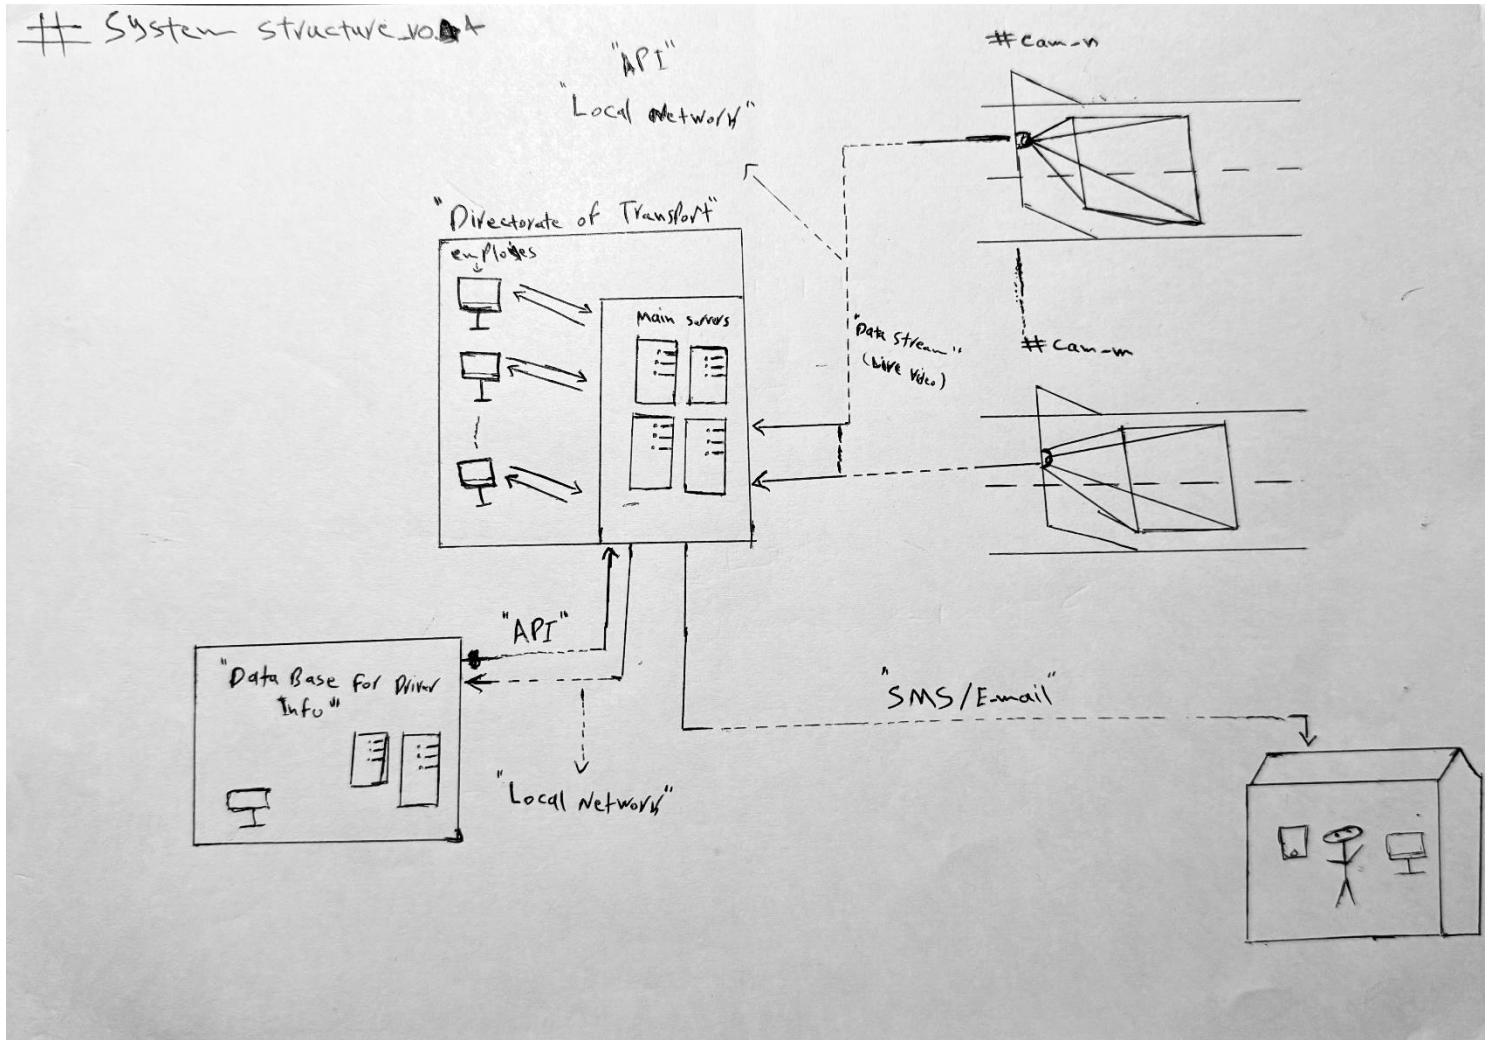 # System structure_v0.1
#cam-n
"API"
"Local Network"
"Directorate of Transport"
employes
Main servers
"Data Stream"
(Live Video)
#cam-m
"API"
"Data Base for Driver
Info"
"SMS/E-mail"
"Local Network"